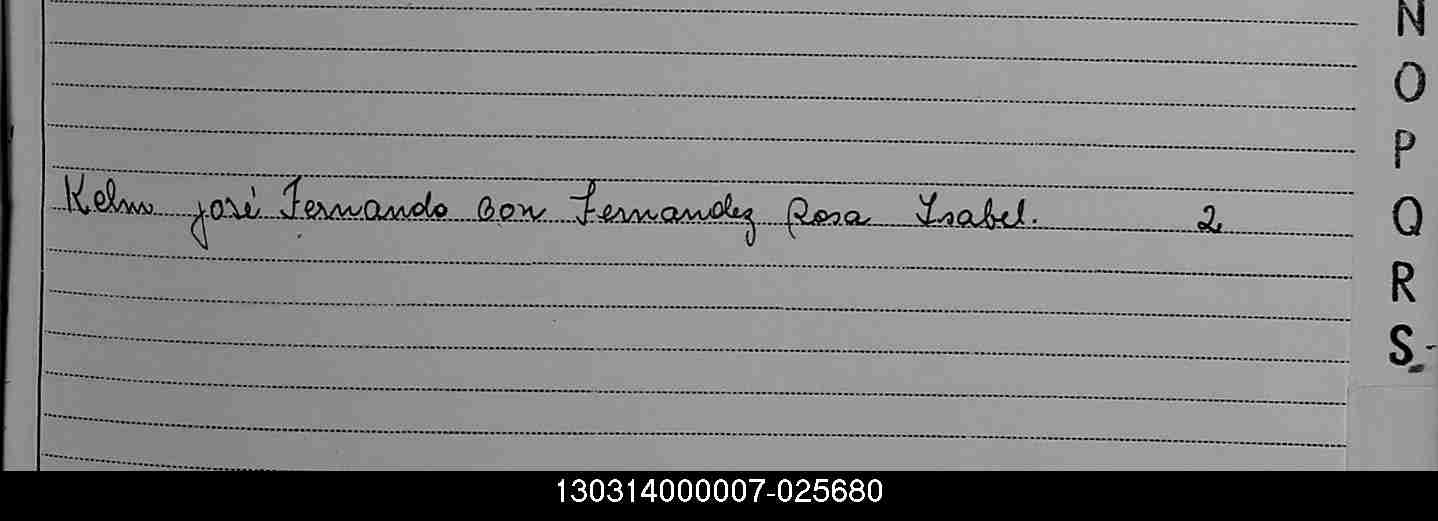 N
O
P
Kelm josé Fernando con Fernandez Rosa Ysabel. 2
Q
R
S
130314000007-025680